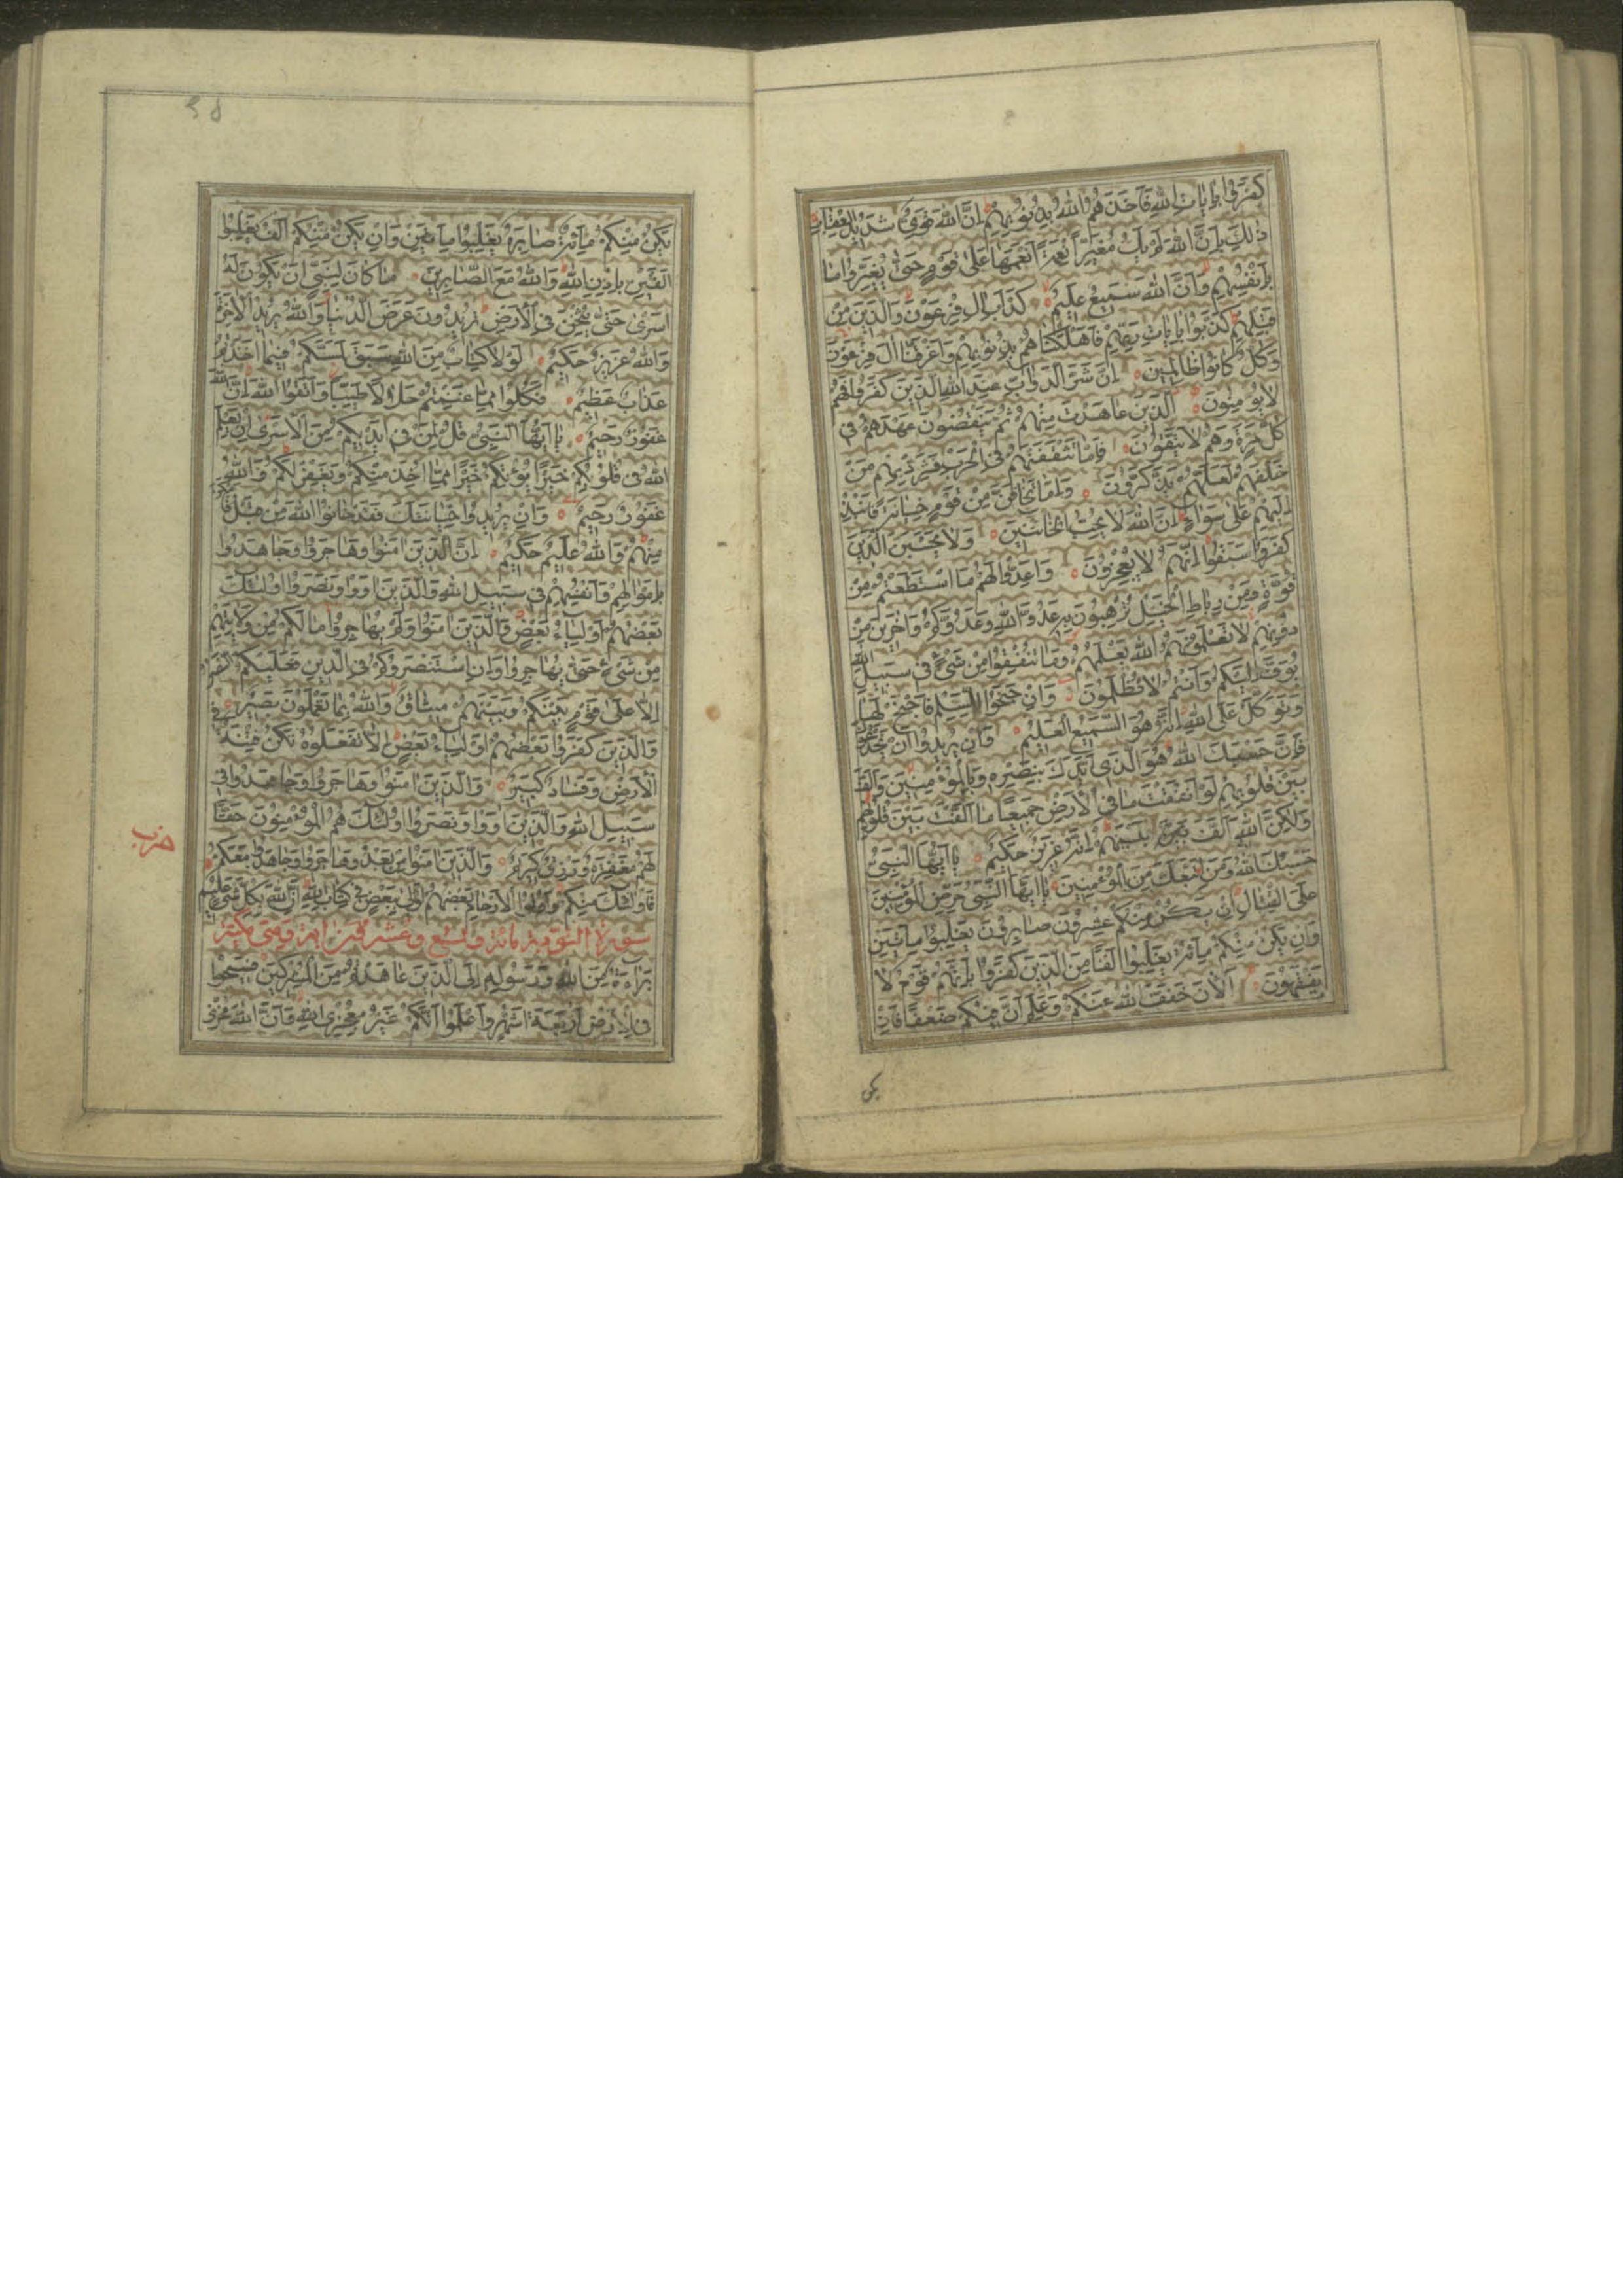 كَفَرُوا بِاٰيَاتِ اللّٰهِ فَاَخَذَهُمُ اللّٰهُ بِذُنُوبِهِمْ اِنَّ اللّٰهَ قَوِىٌّ شَدِيدُ الْعِقَابِ
ذٰلِكَ بِاَنَّ اللّٰهَ لَمْ يَكُ مُغَيِّرًا نِعْمَةً اَنْعَمَهَا عَلٰى قَوْمٍ حَتّٰى يُغَيِّرُوا مَا
بِاَنْفُسِهِمْ وَاَنَّ اللّٰهَ سَمِيعٌ عَلِيمٌ كَدَاْبِ اٰلِ فِرْعَوْنَ وَالَّذِينَ مِنْ
قَبْلِهِمْ كَذَّبُوا بِاٰيَاتِ رَبِّهِمْ فَاَهْلَكْنَاهُمْ بِذُنُوبِهِمْ وَاَغْرَقْنَا اٰلَ فِرْعَوْنَ
وَكُلٌّ كَانُوا ظَالِمِينَ اِنَّ شَرَّ الدَّوَابِّ عِنْدَ اللّٰهِ الَّذِينَ كَفَرُوا فَهُمْ
لَا يُؤْمِنُونَ الَّذِينَ عَاهَدْتَ مِنْهُمْ ثُمَّ يَنْقُضُونَ عَهْدَهُمْ فِى
كُلِّ مَرَّةٍ وَهُمْ لَا يَتَّقُونَ فَاِمَّا تَثْقَفَنَّهُمْ فِى الْحَرْبِ فَشَرِّدْ بِهِمْ مَنْ
خَلْفَهُمْ لَعَلَّهُمْ يَذَّكَّرُونَ وَاِمَّا تَخَافَنَّ مِنْ قَوْمٍ خِيَانَةً فَانْبِذْ
اِلَيْهِمْ عَلٰى سَوَاءٍ اِنَّ اللّٰهَ لَا يُحِبُّ الْخَائِنِينَ وَلَا يَحْسَبَنَّ الَّذِينَ
كَفَرُوا سَبَقُوا اِنَّهُمْ لَا يُعْجِزُونَ وَاَعِدُّوا لَهُمْ مَا اسْتَطَعْتُمْ مِنْ
قُوَّةٍ وَمِنْ رِبَاطِ الْخَيْلِ تُرْهِبُونَ بِهِ عَدُوَّ اللّٰهِ وَعَدُوَّكُمْ وَاٰخَرِينَ مِنْ
دُونِهِمْ لَا تَعْلَمُونَهُمُ اللّٰهُ يَعْلَمُهُمْ وَمَا تُنْفِقُوا مِنْ شَىْءٍ فِى سَبِيلِ اللّٰهِ
يُوَفَّ اِلَيْكُمْ وَاَنْتُمْ لَا تُظْلَمُونَ وَاِنْ جَنَحُوا لِلسَّلْمِ فَاجْنَحْ لَهَا
وَتَوَكَّلْ عَلَى اللّٰهِ اِنَّهُ هُوَ السَّمِيعُ الْعَلِيمُ وَاِنْ يُرِيدُوا اَنْ يَخْدَعُوكَ
فَاِنَّ حَسْبَكَ اللّٰهُ هُوَ الَّذِى اَيَّدَكَ بِنَصْرِهِ وَبِالْمُؤْمِنِينَ وَاَلَّفَ
بَيْنَ قُلُوبِهِمْ لَوْ اَنْفَقْتَ مَا فِى الْاَرْضِ جَمِيعًا مَا اَلَّفْتَ بَيْنَ قُلُوبِهِمْ
وَلٰكِنَّ اللّٰهَ اَلَّفَ بَيْنَهُمْ اِنَّهُ عَزِيزٌ حَكِيمٌ يَا اَيُّهَا النَّبِىُّ
حَسْبُكَ اللّٰهُ وَمَنِ اتَّبَعَكَ مِنَ الْمُؤْمِنِينَ يَا اَيُّهَا النَّبِىُّ حَرِّضِ الْمُؤْمِنِينَ
عَلَى الْقِتَالِ اِنْ يَكُنْ مِنْكُمْ عِشْرُونَ صَابِرُونَ يَغْلِبُوا مِاَتَيْنِ
وَاِنْ يَكُنْ مِنْكُمْ مِائَةٌ يَغْلِبُوا اَلْفًا مِنَ الَّذِينَ كَفَرُوا بِاَنَّهُمْ قَوْمٌ لَا
يَفْقَهُونَ اَلْاٰنَ خَفَّفَ اللّٰهُ عَنْكُمْ وَعَلِمَ اَنَّ فِيكُمْ ضَعْفًا فَاِنْ
يكن
يَكُنْ مِنْكُمْ مِائَةٌ صَابِرَةٌ يَغْلِبُوا مِاَتَيْنِ وَاِنْ يَكُنْ مِنْكُمْ اَلْفٌ يَغْلِبُوا
اَلْفَيْنِ بِاِذْنِ اللّٰهِ وَاللّٰهُ مَعَ الصَّابِرِينَ مَا كَانَ لِنَبِىٍّ اَنْ يَكُونَ لَهُ
اَسْرٰى حَتّٰى يُثْخِنَ فِى الْاَرْضِ تُرِيدُونَ عَرَضَ الدُّنْيَا وَاللّٰهُ يُرِيدُ الْاٰخِرَةَ
وَاللّٰهُ عَزِيزٌ حَكِيمٌ لَوْلَا كِتَابٌ مِنَ اللّٰهِ سَبَقَ لَمَسَّكُمْ فِيمَا اَخَذْتُمْ
عَذَابٌ عَظِيمٌ فَكُلُوا مِمَّا غَنِمْتُمْ حَلَالًا طَيِّبًا وَاتَّقُوا اللّٰهَ اِنَّ اللّٰهَ
غَفُورٌ رَحِيمٌ يَا اَيُّهَا النَّبِىُّ قُلْ لِمَنْ فِى اَيْدِيكُمْ مِنَ الْاَسْرٰى اِنْ يَعْلَمِ
اللّٰهُ فِى قُلُوبِكُمْ خَيْرًا يُؤْتِكُمْ خَيْرًا مِمَّا اُخِذَ مِنْكُمْ وَيَغْفِرْ لَكُمْ وَاللّٰهُ
غَفُورٌ رَحِيمٌ وَاِنْ يُرِيدُوا خِيَانَتَكَ فَقَدْ خَانُوا اللّٰهَ مِنْ قَبْلُ فَاَمْكَنَ
مِنْهُمْ وَاللّٰهُ عَلِيمٌ حَكِيمٌ اِنَّ الَّذِينَ اٰمَنُوا وَهَاجَرُوا وَجَاهَدُوا
بِاَمْوَالِهِمْ وَاَنْفُسِهِمْ فِى سَبِيلِ اللّٰهِ وَالَّذِينَ اٰوَوْا وَنَصَرُوا اُولٰئِكَ
بَعْضُهُمْ اَوْلِيَاءُ بَعْضٍ وَالَّذِينَ اٰمَنُوا وَلَمْ يُهَاجِرُوا مَا لَكُمْ مِنْ وَلَايَتِهِمْ
مِنْ شَىْءٍ حَتّٰى يُهَاجِرُوا وَاِنِ اسْتَنْصَرُوكُمْ فِى الدِّينِ فَعَلَيْكُمُ النَّصْرُ
اِلَّا عَلٰى قَوْمٍ بَيْنَكُمْ وَبَيْنَهُمْ مِيثَاقٌ وَاللّٰهُ بِمَا تَعْمَلُونَ بَصِيرٌ
وَالَّذِينَ كَفَرُوا بَعْضُهُمْ اَوْلِيَاءُ بَعْضٍ اِلَّا تَفْعَلُوهُ تَكُنْ فِتْنَةٌ فِى
الْاَرْضِ وَفَسَادٌ كَبِيرٌ وَالَّذِينَ اٰمَنُوا وَهَاجَرُوا وَجَاهَدُوا فِى
سَبِيلِ اللّٰهِ وَالَّذِينَ اٰوَوْا وَنَصَرُوا اُولٰئِكَ هُمُ الْمُؤْمِنُونَ حَقًّا
حزب
لَهُمْ مَغْفِرَةٌ وَرِزْقٌ كَرِيمٌ وَالَّذِينَ اٰمَنُوا مِنْ بَعْدُ وَهَاجَرُوا وَجَاهَدُوا مَعَكُمْ
فَاُولٰئِكَ مِنْكُمْ وَاُولُوا الْاَرْحَامِ بَعْضُهُمْ اَوْلٰى بِبَعْضٍ فِى كِتَابِ اللّٰهِ اِنَّ اللّٰهَ بِكُلِّ شَىْءٍ عَلِيمٌ
سورة التوبة مائة وتسع وعشرون اية وهى
بَرَاءَةٌ مِنَ اللّٰهِ وَرَسُولِهِ اِلَى الَّذِينَ عَاهَدْتُمْ مِنَ الْمُشْرِكِينَ فَسِيحُوا
فِى الْاَرْضِ اَرْبَعَةَ اَشْهُرٍ وَاعْلَمُوا اَنَّكُمْ غَيْرُ مُعْجِزِى اللّٰهِ وَاَنَّ اللّٰهَ مُخْزِى